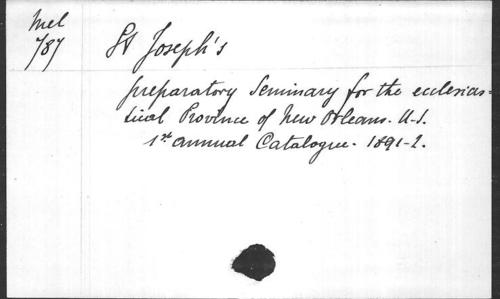 Mel
787
St Joseph's
preparatory Seminary for the ecclesias=
tical Province of New Orleans. U.S.
1st annual Catalogue. 1891-2.